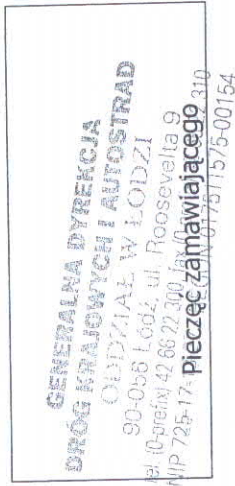 GENERALNA DYREKCJA
DRÓG KRAJOWYCH I AUTOSTRAD
ODDZIAŁ W ŁODZI
90-056 Łódź, ul. Roosevelta 9
tel. (0-prefix) 42 66 22 300, fax 310
NIP 725-17- 017511575-00154
Pieczęć zamawiającego